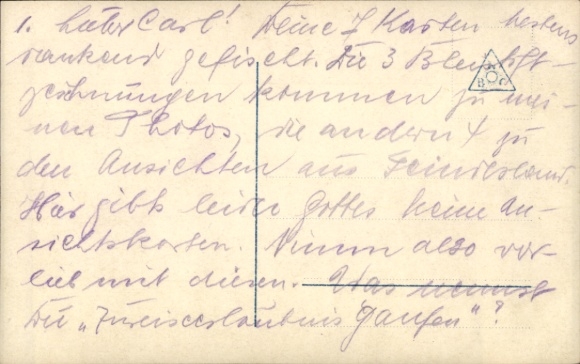 1. Vater Carl! Deine 7 Karten bestens
dankend gefischt. Die 3 Bleistift-
zeichnungen kommen zu mei-
nen Photos, die andern 4 zu
den Ansichten aus Feindesland.
Hier gibts leider Gottes keine An-
sichtskarten. Nimm also vor-
lieb mit diesen. Was nennst
Du „Zureiseerlaubnis